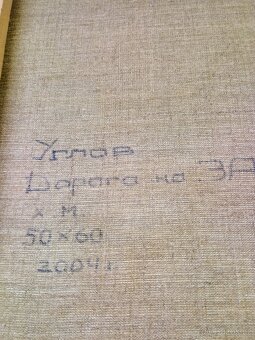 Дорога на ЗА
х. м.
50×60
2004 г.